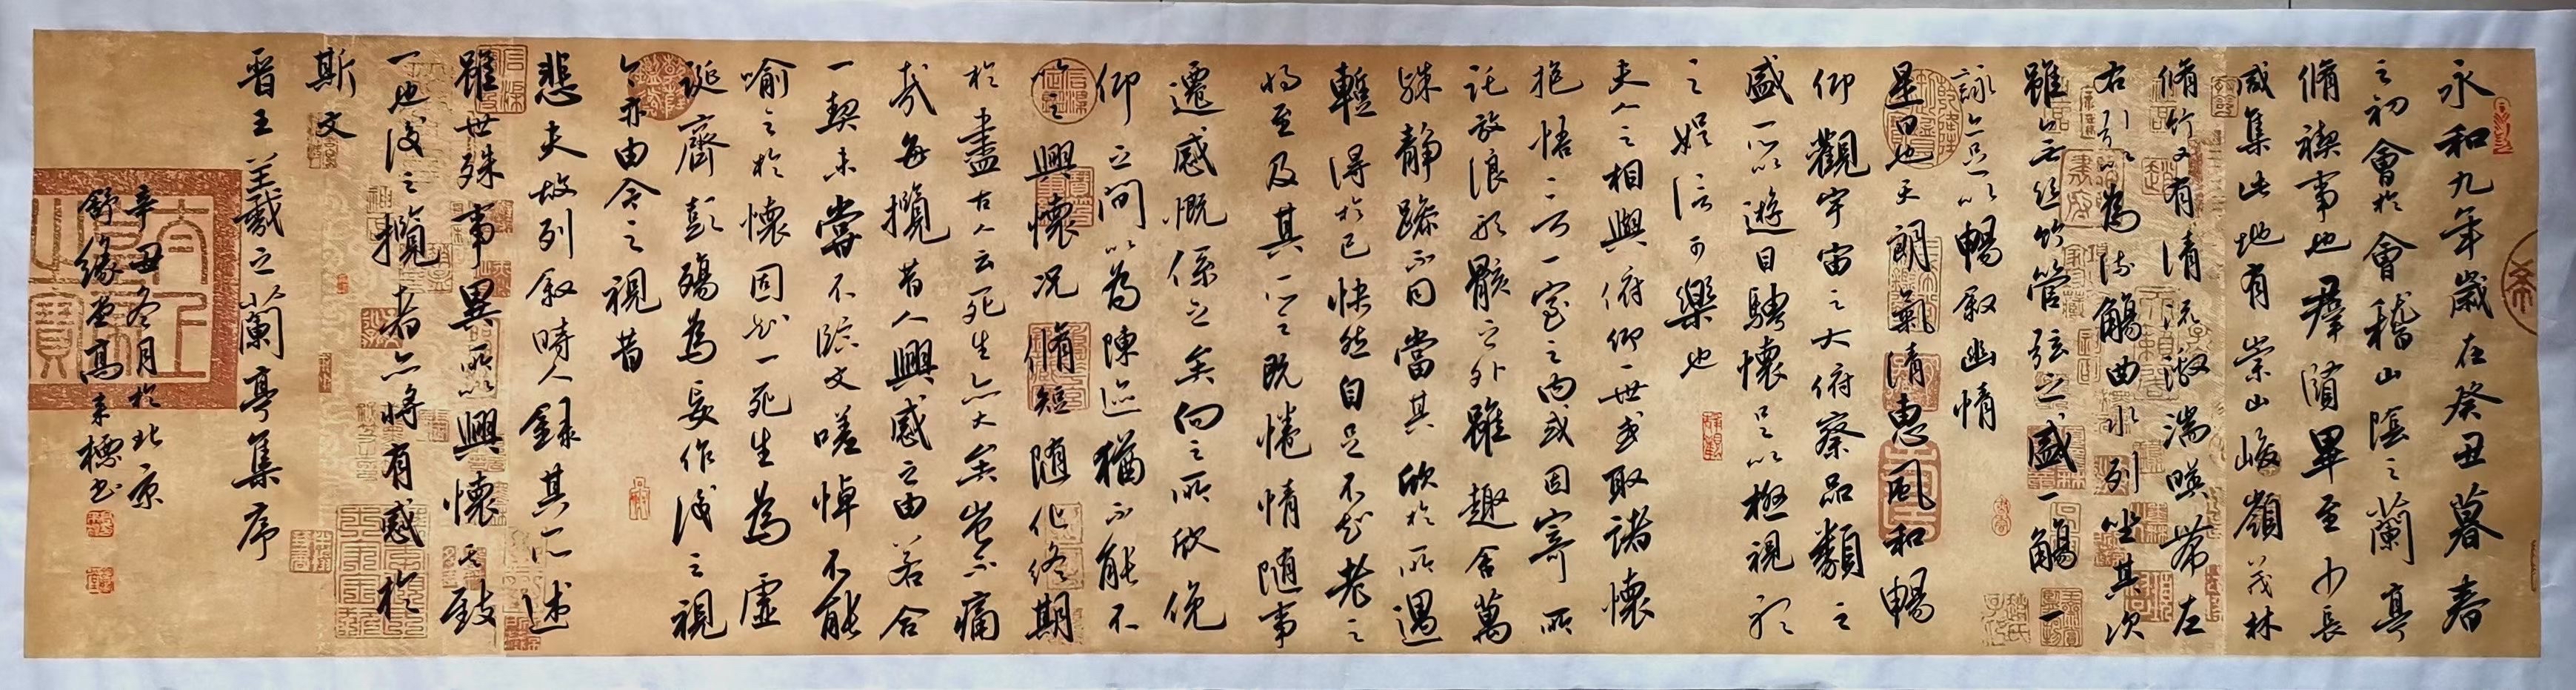 永和九年歲在癸丑暮春
之初會於會稽山陰之蘭亭
脩禊事也羣賢畢至少長
咸集此地有崇山峻嶺茂林
脩竹又有清流激湍暎帶左
右引以為流觴曲水列坐其次
雖無絲竹管弦之盛一觴一
詠亦足以暢叙幽情
是日也天朗氣清惠風和暢
仰觀宇宙之大俯察品類之
盛所以遊目騁懷足以極視聽
之娛信可樂也
夫人之相與俯仰一世或取諸懷
抱悟言一室之內或因寄所
託放浪形骸之外雖趣舍萬
殊靜躁不同當其欣於所遇
暫得於己快然自足不知老之
將至及其所之既惓情随事
遷感慨係之矣向之所欣俛
仰之間以為陳迹猶不能不
以之興懷況脩短随化終期
於盡古人云死生亦大矣豈不痛
哉每攬昔人興感之由若合
一契未嘗不臨文嗟悼不能
喻之於懷固知一死生為虛
誕齊彭殤為妄作後之視
今亦由今之視昔
悲夫故列叙時人錄其所述
雖世殊事異所以興懷其致
一也後之攬者亦將有感於
斯文
晉王羲之蘭亭集序
辛丑冬月於北京
舒緣堂高標書